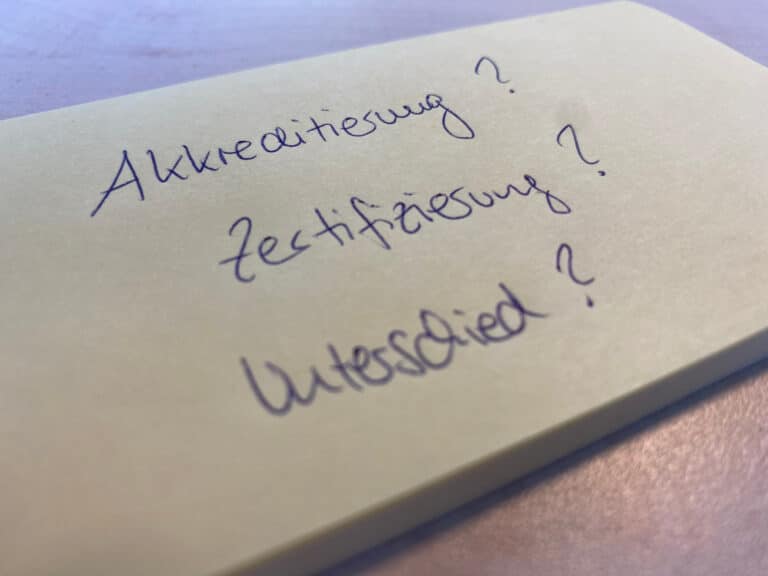 Akkreditierung?
Zertifizierung?
Unterschied?